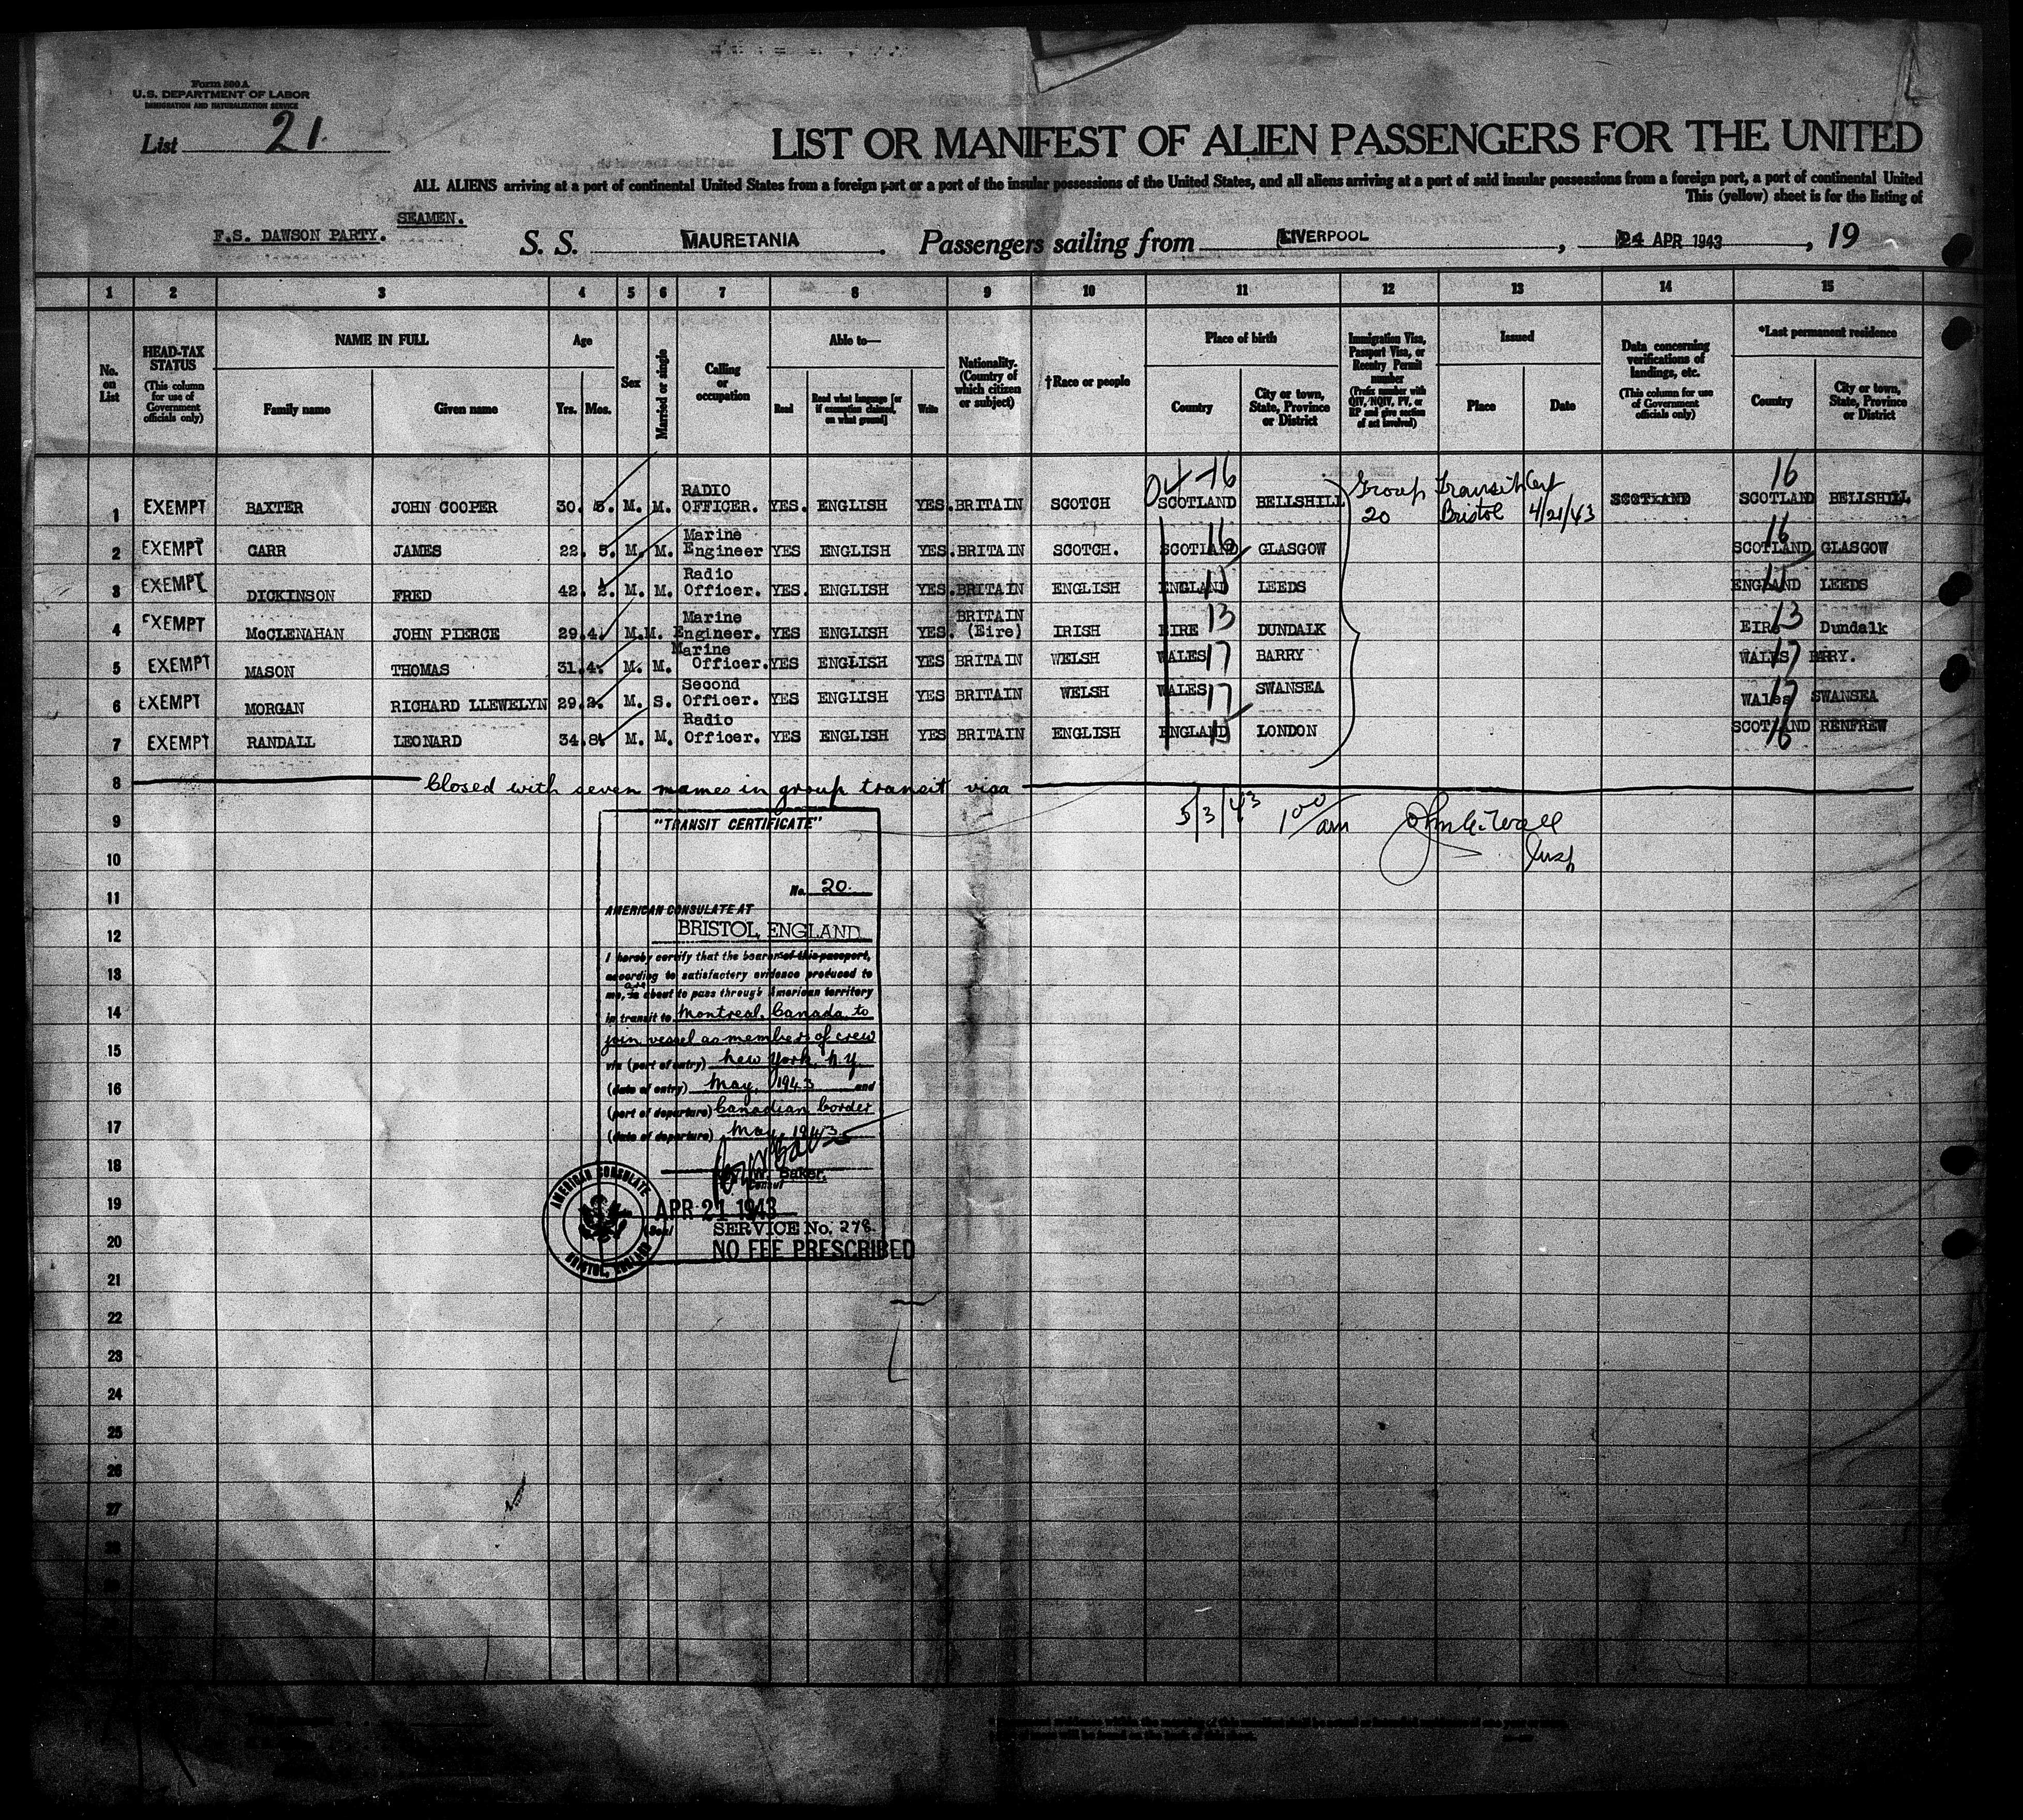 Form 500 A
U.S. DEPARTMENT OF LABOR
IMMIGRATION AND NATURALIZATION SERVICE
List 21.
LIST OR MANIFEST OF ALIEN PASSENGERS FOR THE UNITED
ALL ALIENS arriving at a port of continental United States from a foreign port or a port of the insular possessions of the United States, and all aliens arriving at a port of said insular possessions from a foreign port, a port of continental United
This (yellow) sheet is for the listing of
SEAMEN.
F.S. DAWSON PARTY. S. S. MAURETANIA. Passengers sailing from LIVERPOOL, 24 APR 1943, 19
1 2 3 4 5 6 7 8 9 10 11 12 13 14 15
No. on List
HEAD-TAX STATUS
(This column for use of Government officials only)
NAME IN FULL
Family name Given name
Age
Yrs. Mos.
Sex
Married or single
Calling or occupation
Able to—
Read Read what language [or if exemption claimed, on what ground] Write
Nationality. (Country of which citizen or subject)
†Race or people
Place of birth
Country City or town, State, Province or District
Immigration Visa, Passport Visa, or Reentry Permit number
(Prefix number with QIV, NQIV, PV, or RP and give section of act involved)
Issued
Place Date
Data concerning verifications of landings, etc.
(This column for use of Government officials only)
*Last permanent residence
Country City or town, State, Province or District
1 EXEMPT BAXTER JOHN COOPER 30. 5. M. M. RADIO OFFICER. YES. ENGLISH YES. BRITAIN SCOTCH 16 SCOTLAND BELLSHILL Group 20 Transit Cert Bristol 4/21/43 SCOTLAND 16 SCOTLAND BELLSHILL
2 EXEMPT CARR JAMES 22. 5. M. M. Marine Engineer YES ENGLISH YES. BRITAIN SCOTCH. SCOTLAND 16 GLASGOW SCOTLAND 16 GLASGOW
3 EXEMPT DICKINSON FRED 42. 2. M. M. Radio Officer. YES. ENGLISH YES. BRITAIN ENGLISH ENGLAND LEEDS ENGLAND LEEDS
4 EXEMPT McCLENAHAN JOHN PIERCE 29. 4. M. M. Marine Engineer. YES ENGLISH YES. BRITAIN (Eire) IRISH EIRE 13 DUNDALK EIRE 13 Dundalk
5 EXEMPT MASON THOMAS 31. 4. M. M. Marine Officer. YES ENGLISH YES BRITAIN WELSH WALES 17 BARRY WALES 17 BARRY.
6 EXEMPT MORGAN RICHARD LLEWELYN 29. 2. M. S. Second Officer. YES ENGLISH YES BRITAIN WELSH WALES 17 SWANSEA Wales 17 SWANSEA
7 EXEMPT RANDALL LEONARD 34. 8. M. M. Radio Officer. YES ENGLISH YES BRITAIN ENGLISH ENGLAND LONDON SCOTLAND 16 RENFREW
8 Closed with seven names in group transit visa
9 5/3/43 1 00/am John G. Wall
Insp
10
11
12
13
14
15
16
17
18
19
20
21
22
23
24
25
26
27
28
"TRANSIT CERTIFICATE"
No. 20.
AMERICAN CONSULATE AT
BRISTOL, ENGLAND
I hereby certify that the bearer of this passport,
according to satisfactory evidence produced to
me, is are about to pass through American territory
in transit to Montreal, Canada, to
join vessel as members of crew
via (port of entry) New York, N.Y.
(date of entry) May, 1943 and
(port of departure) Canadian border
(date of departure) May, 1943
W. Baker,
Consul
APR 21 1943
(Seal) SERVICE No. 278.
NO FEE PRESCRIBED
AMERICAN CONSULATE
BRISTOL, ENGLAND